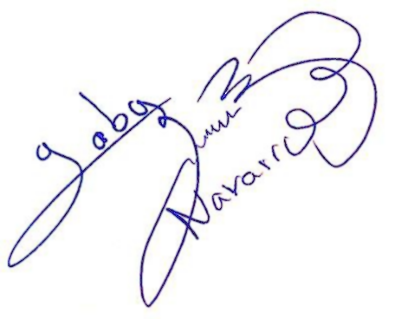 gabo
Navarro